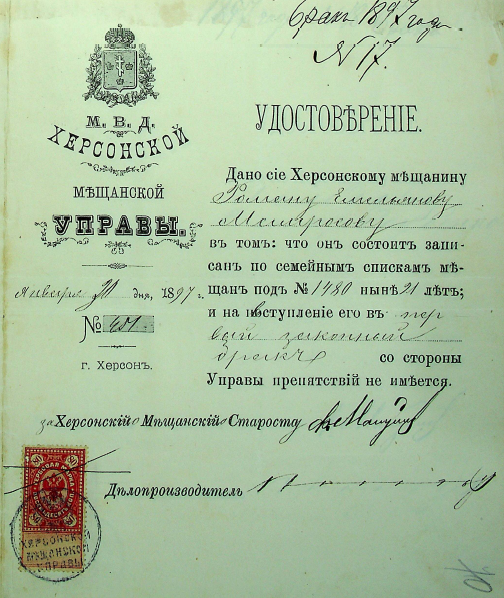 бракъ 1897 года.
N 17.
М. В. Д.
ХЕРСОНСКОЙ
МѢЩАНСКОЙ
УПРАВЫ.
Января 21 дня, 1897 г.
№ 451
г. Херсонъ.
УДОСТОВѢРЕНІЕ.
Дано сіе Херсонскому мѣщанину
Роману Емельянову
въ томъ: что онъ состоитъ запи-
санъ по семейнымъ спискамъ мѣ-
щанъ подъ № 1480 нынѣ 21 лѣтъ;
и на вступленіе его въ пер
вый законный
бракъ со стороны
Управы препятствій не имѣется.
за Херсонскій Мѣщанскій Староста
Дѣлопроизводитель
80 80
ХЕРСОНСКОЙ
МѢЩАНСКОЙ
УПРАВЫ